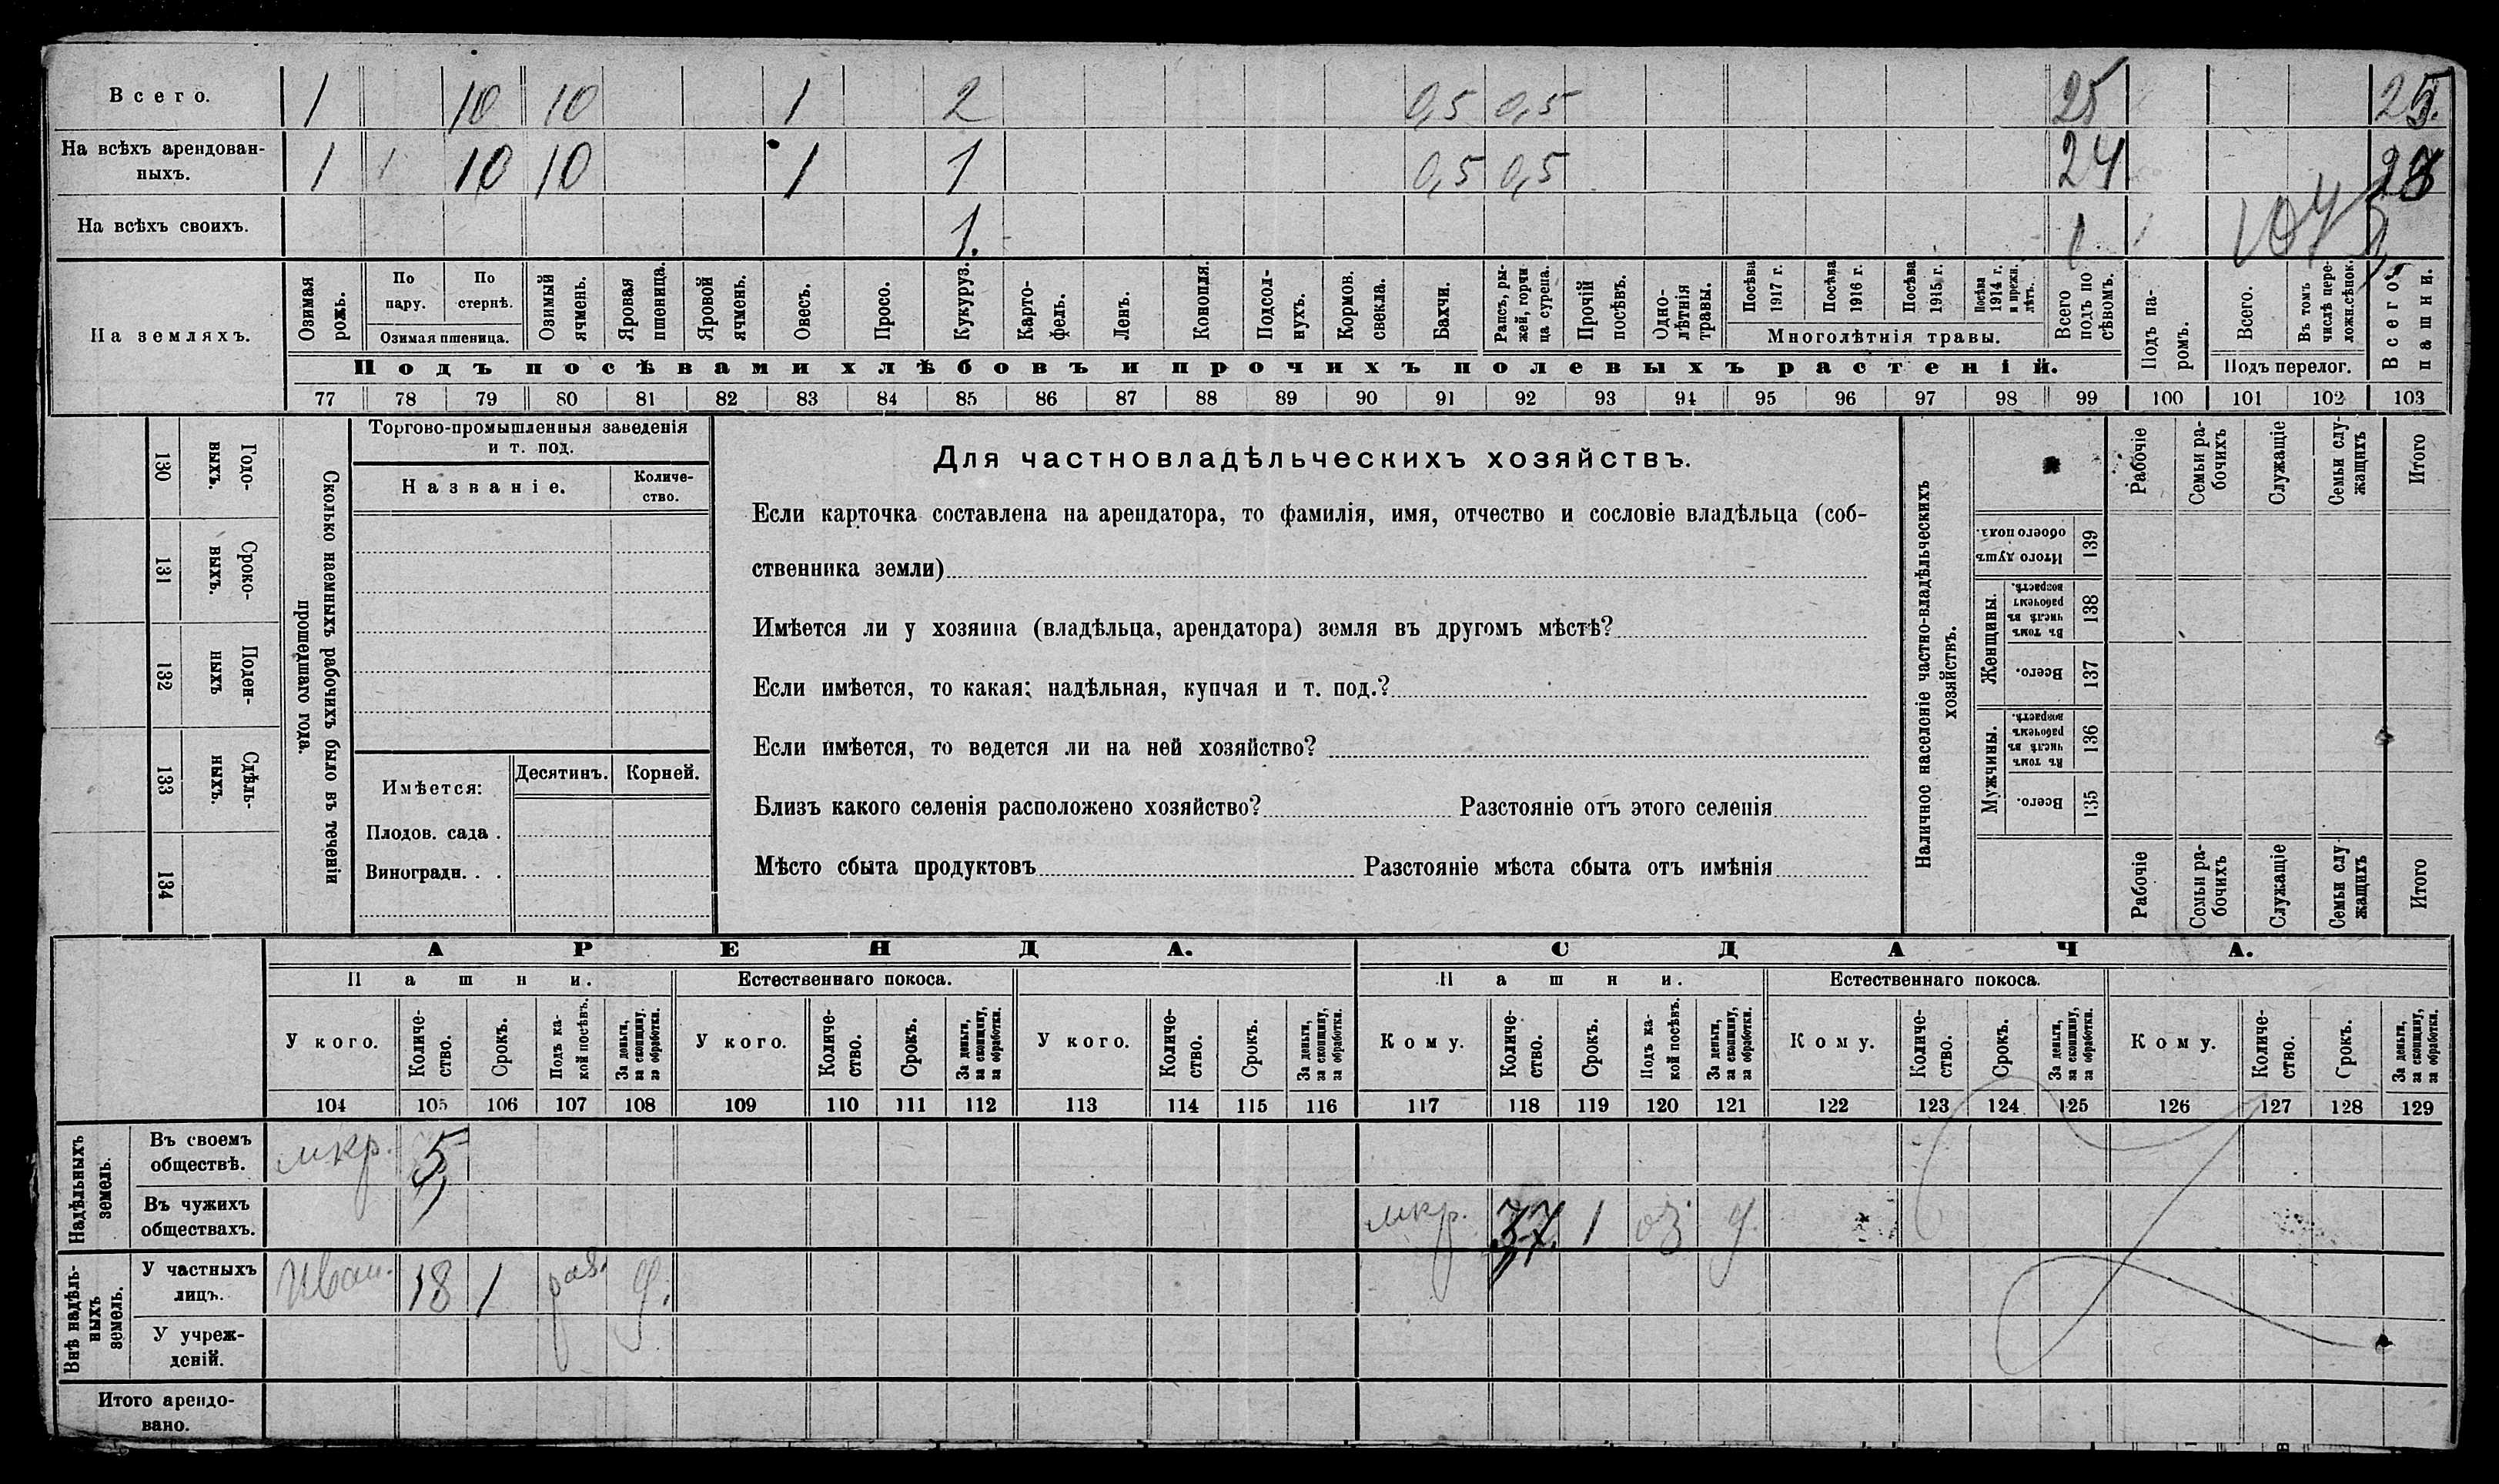 Всего. 1 10 10 1 2 0,5 0,5 25 25.
На всѣхъ арендован-
ныхъ. 1 1 10 10 1 1 0,5 0,5 24
На всѣхъ своихъ. 1. 1 1
На земляхъ.
Озимая рожь.
По пару.
По стернѣ.
Озимая пшеница.
Озимый ячмень.
Яровая пшеница.
Яровой ячмень.
Овесъ.
Просо.
Кукуруз.
Карто-
фель.
Ленъ.
Конопля.
Подсол-
нухъ.
Кормов. свекла.
Бахчи.
Рапсъ, ры-
жей, горчи
ца сурепа.
Прочій посѣвъ.
Одно-
лѣтнія
травы.
Посѣва 1917 г.
Посѣва 1916 г.
Посѣва 1915 г.
Посѣва 1914 г. и прежн. лѣтъ.
Многолѣтнія травы.
Всего подъ по
сѣвомъ.
Подъ па-
ромъ.
Всего.
Въ томъ числѣ пере-
ложн.сѣнок.
Подъ перелог.
Всего пашни.
Подъ посѣвами хлѣбовъ и прочихъ полевыхъ растеній.
77 78 79 80 81 82 83 84 85 86 87 88 89 90 91 92 93 94 95 96 97 98 99 100 101 102 103
130 Годо-
выхъ.
131 Сроко-
выхъ.
132 Поден-
ныхъ
133 Сдѣль-
ныхъ.
134
Сколько наемныхъ рабочихъ было въ теченіи
прошедшаго года.
Торгово-промышленныя заведенія
и т. под.
Названіе.
Количе-
ство.
Имѣется: Десятинъ. Корней.
Плодов. сада .
Виноградн. . .
Для частновладѣльческихъ хозяйствъ.
Если карточка составлена на арендатора, то фамилія, имя, отчество и сословіе владѣльца (соб-
ственника земли)
Имѣется ли у хозяина (владѣльца, арендатора) земля въ другомъ мѣстѣ?
Если имѣется, то какая: надѣльная, купчая и т. под.?
Если имѣется, то ведется ли на ней хозяйство?
Близъ какого селенія расположено хозяйство? Разстояніе отъ этого селенія
Мѣсто сбыта продуктовъ Разстояніе мѣста сбыта отъ имѣнія
Наличное населеніе частно-владѣльческихъ
хозяйствъ.
Рабочіе
Семьи ра-
бочихъ
Служащіе
Семьи слу-
жащихъ
Итого
Итого душъ обоего пола. 139
Женщины.
Въ томъ числѣ въ рабочемъ возрастѣ. 138
Всего. 137
Мужчины.
Въ томъ числѣ въ рабочемъ возрастѣ. 136
Всего. 135
Рабочіе
Семьи ра-
бочихъ
Служащіе
Семьи слу
жащихъ
Итого
АРЕНДА. СДАЧА.
Пашни. Естественнаго покоса. Пашни. Естественнаго покоса.
У кого.
Количе-
ство.
Срокъ.
Подъ ка-
кой посѣвъ.
За деньги,
за скопщину.
за обработки.
У кого.
Количе-
ство.
Срокъ.
За деньги,
за скопщину,
за обработки.
У кого.
Количе-
ство.
Срокъ.
За деньги,
за скопщину,
за обработки.
Кому.
Количе-
ство.
Срокъ.
Подъ ка-
кой посѣвъ.
За деньги,
за скопщину,
за обработки.
Кому.
Количе-
ство.
Срокъ.
За деньги,
за скопщину,
за обработки.
Кому.
Количе-
ство.
Срокъ.
За деньги,
за скопщину,
за обработки.
104 105 106 107 108 109 110 111 112 113 114 115 116 117 118 119 120 121 122 123 124 125 126 127 128 129
Надѣльныхъ
земель.
Въ своемъ
обществѣ. мкр. 5
Въ чужихъ
обществахъ. мкр. 1 оз. д.
Внѣ надѣль-
ныхъ
земель.
У частныхъ
лицъ. 18 1 раз. д.
У учреж-
деній.
Итого арендо-
вано.